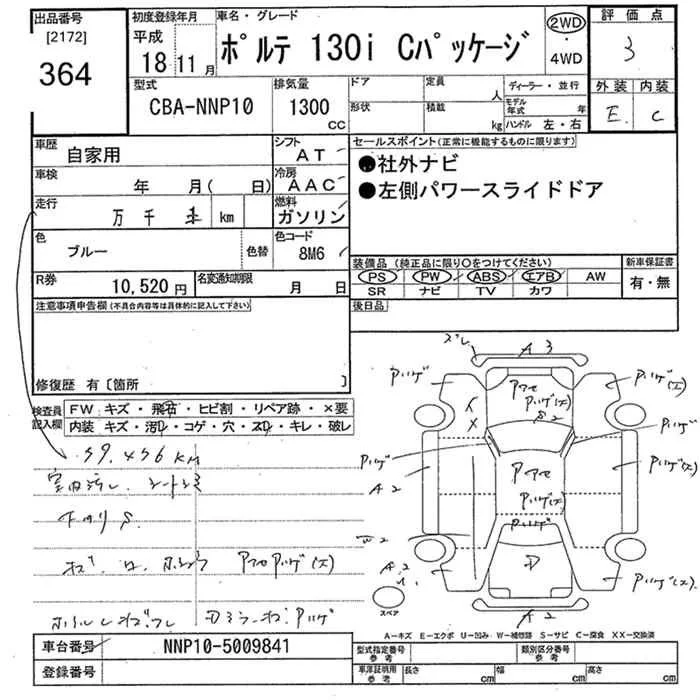 出品番号
[2172]
364
初度登録年月
平成
18 11 月
車名・グレード
ポルテ 130i Cパッケージ
2WD
・
4WD
評価点
3
外装 内装
E C
型式
CBA-NNP10
排気量
1300
CC
ドア
形状
定員
人
積載
kg
ディーラー・並行
モデル年式 年
ハンドル 左・右
車歴
自家用
シフト
AT
車検
年 月( 日)
冷房
AAC
走行
万 千 km
燃料
ガソリン
色
ブルー
色替
色コード
8M6
R券
10,520 円
名変通知期限
月 日
セールスポイント(正常に機能するものに限ります)
●社外ナビ
●左側パワースライドドア
装備品(純正品に限り○をつけてください)
PS PW ABS エアB AW
SR ナビ TV カワ
新車保証書
有・無
後日品
注意事項申告欄(不具合内容等は具体的に記入して下さい)
修復歴 有〔箇所 〕
検査員記入欄
FW キズ・飛石・ヒビ割・リペア跡・×要
内装 キズ・汚れ・コゲ・穴・スレ・キレ・破レ
59.456 KM
室内汚レ シートシミ
ズレ A3
Pハゲ
Pハゲ(大)
Pアセ
Pハゲ(大)
S2
Pハゲ
A2
Pハゲ
Pハゲ(大)
Pアセ
Pハゲ(大)
Pハゲ
A2
Pハゲ(大)
A2
スペア
A-キズ E-エクボ U-凹み W-補修跡 S-サビ C-腐食 XX-交換済
車台番号
NNP10-5009841
登録番号
型式指定番号
参考
類別区分番号
参考
車庫証明用
参考
長さ cm
幅 cm
高さ cm